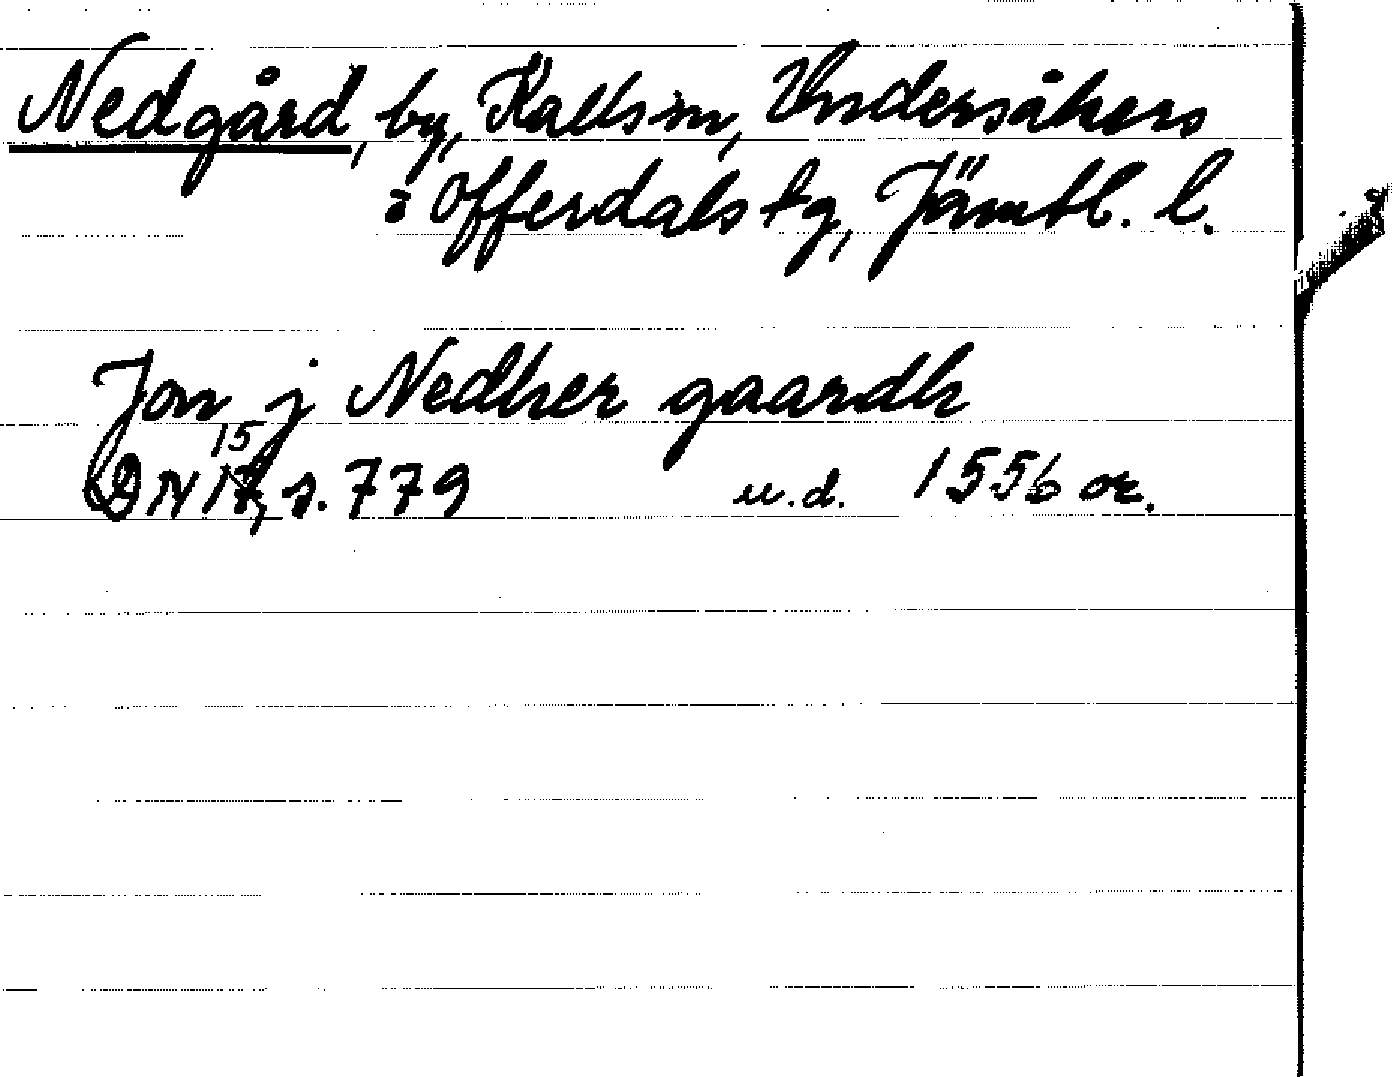 Nedgård, by, Kalls sn, Undersåkers
o Offerdals tg, Jämtl. l.
Jon j Nedher gaardh
15
DN 17, s. 779 u.d. 1556 or.